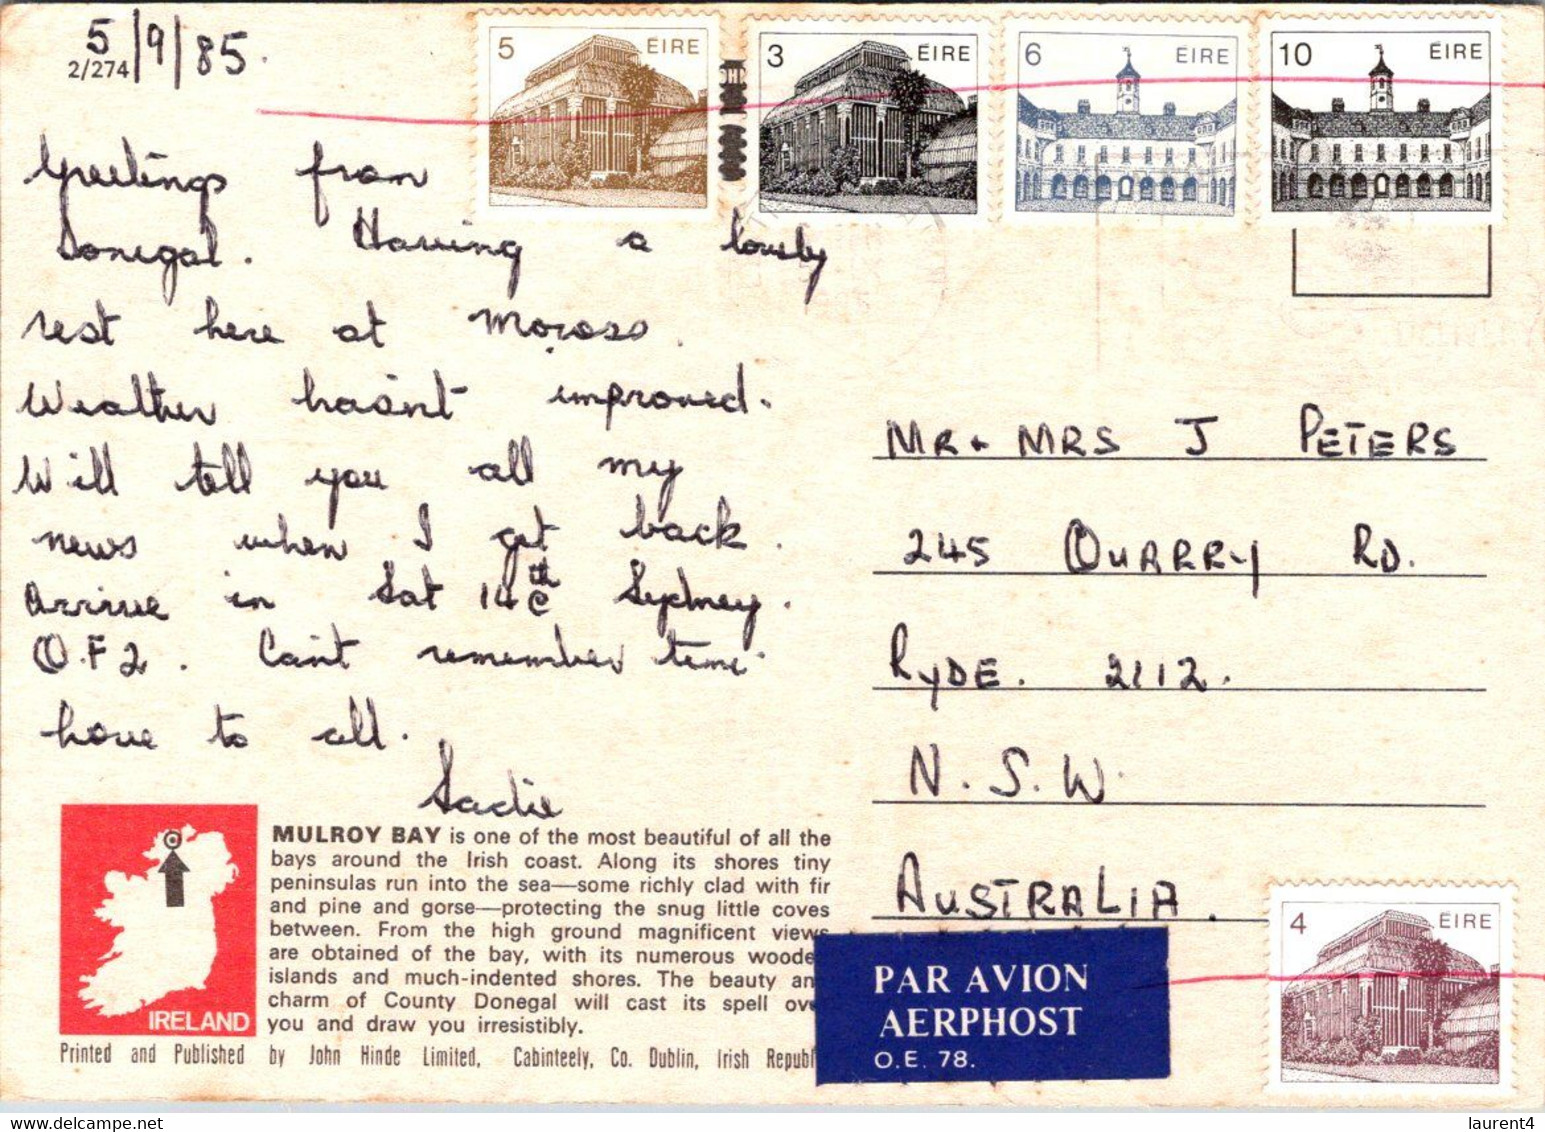 5/9/85.
2/274
5 ÉIRE
3 ÉIRE
6 ÉIRE
10 ÉIRE
Greetings from
Donegal. Having a lovely
rest here at Moross.
Weather hasn't improved.
Will tell you all my
news when I get back.
Arrive in Sat 14th Sydney.
Q.F 2. Can't remember time.
hove to all.
Sadie
MR + MRS J PETERS
245 QUARRY RD.
RYDE. 2112.
N.S.W.
AUSTRALIA.
4 ÉIRE
PAR AVION
AERPHOST
O.E. 78.
IRELAND
MULROY BAY is one of the most beautiful of all the
bays around the Irish coast. Along its shores tiny
peninsulas run into the sea—some richly clad with fir
and pine and gorse—protecting the snug little coves
between. From the high ground magnificent views
are obtained of the bay, with its numerous woode
islands and much-indented shores. The beauty an
charm of County Donegal will cast its spell ov
you and draw you irresistibly.
Printed and Published by John Hinde Limited, Cabinteely, Co. Dublin, Irish Republ
laurent4